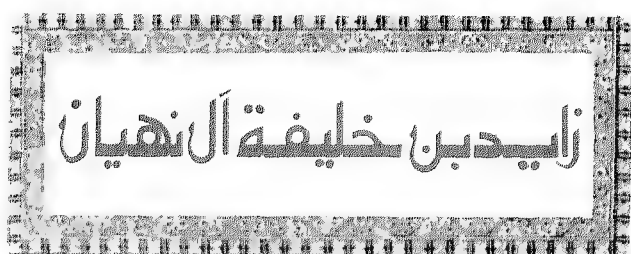 زايد بن خليفة آل نهيان